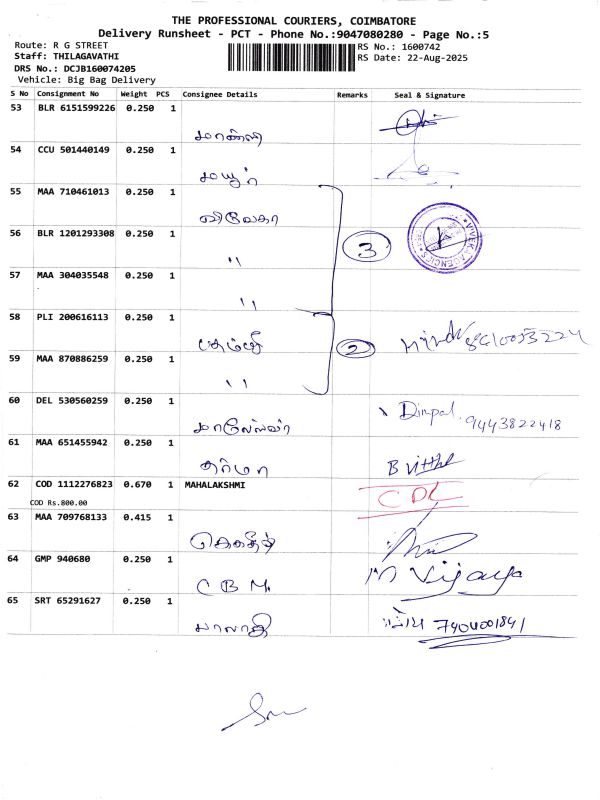 THE PROFESSIONAL COURIERS, COIMBATORE
Delivery Runsheet - PCT - Phone No.:9047080280 - Page No.:5
Route: R G STREET
RS No.: 1600742
Staff: THILAGAVATHI
RS Date: 22-Aug-2025
DRS No.: DCJB160074205
Vehicle: Big Bag Delivery
S No Consignment No Weight PCS Consignee Details Remarks Seal & Signature
53 BLR 6151599226 0.250 1
54 CCU 501440149 0.250 1
55 MAA 710461013 0.250 1
VIVEK AGENCIES
56 BLR 1201293308 0.250 1
" 3
57 MAA 304035548 0.250 1
"
58 PLI 200616113 0.250 1
2
59 MAA 870886259 0.250 1
"
60 DEL 530560259 0.250 1
Dimpal 9443822418
61 MAA 651455942 0.250 1
தர்மா
62 COD 1112276823 0.670 1 MAHALAKSHMI
COD Rs.800.00
63 MAA 709768133 0.415 1
64 GMP 940680 0.250 1
C B M. M Vijaya
65 SRT 65291627 0.250 1
பாலாதி 7904001841